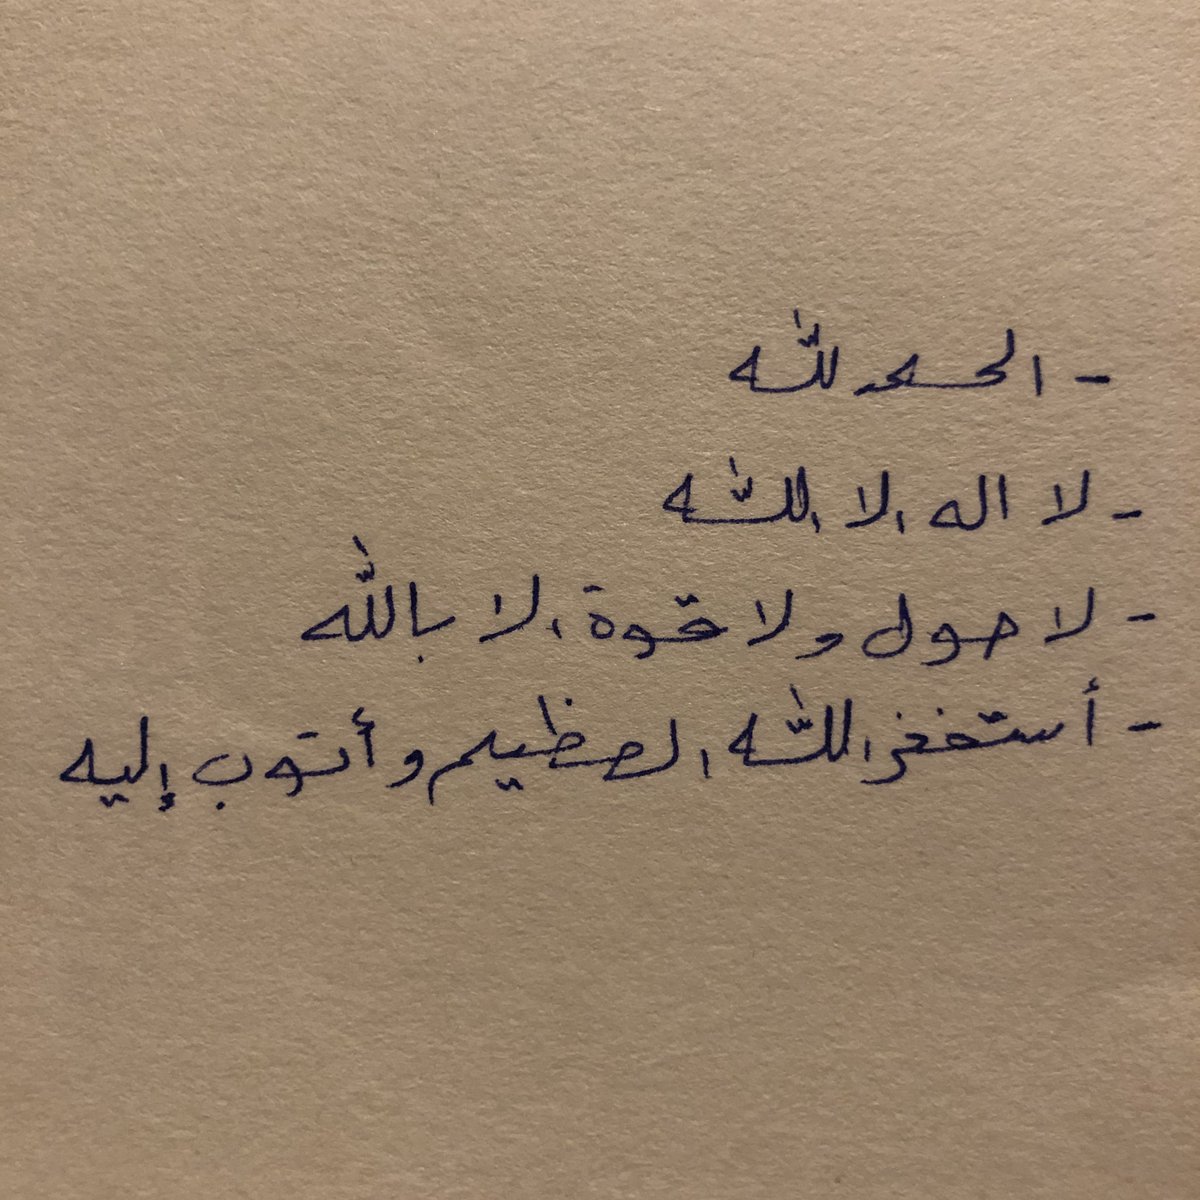 - الحمد لله
- لا اله الا الله
- لا حول ولا قوة الا بالله
- أستغفر الله العظيم وأتوب إليه